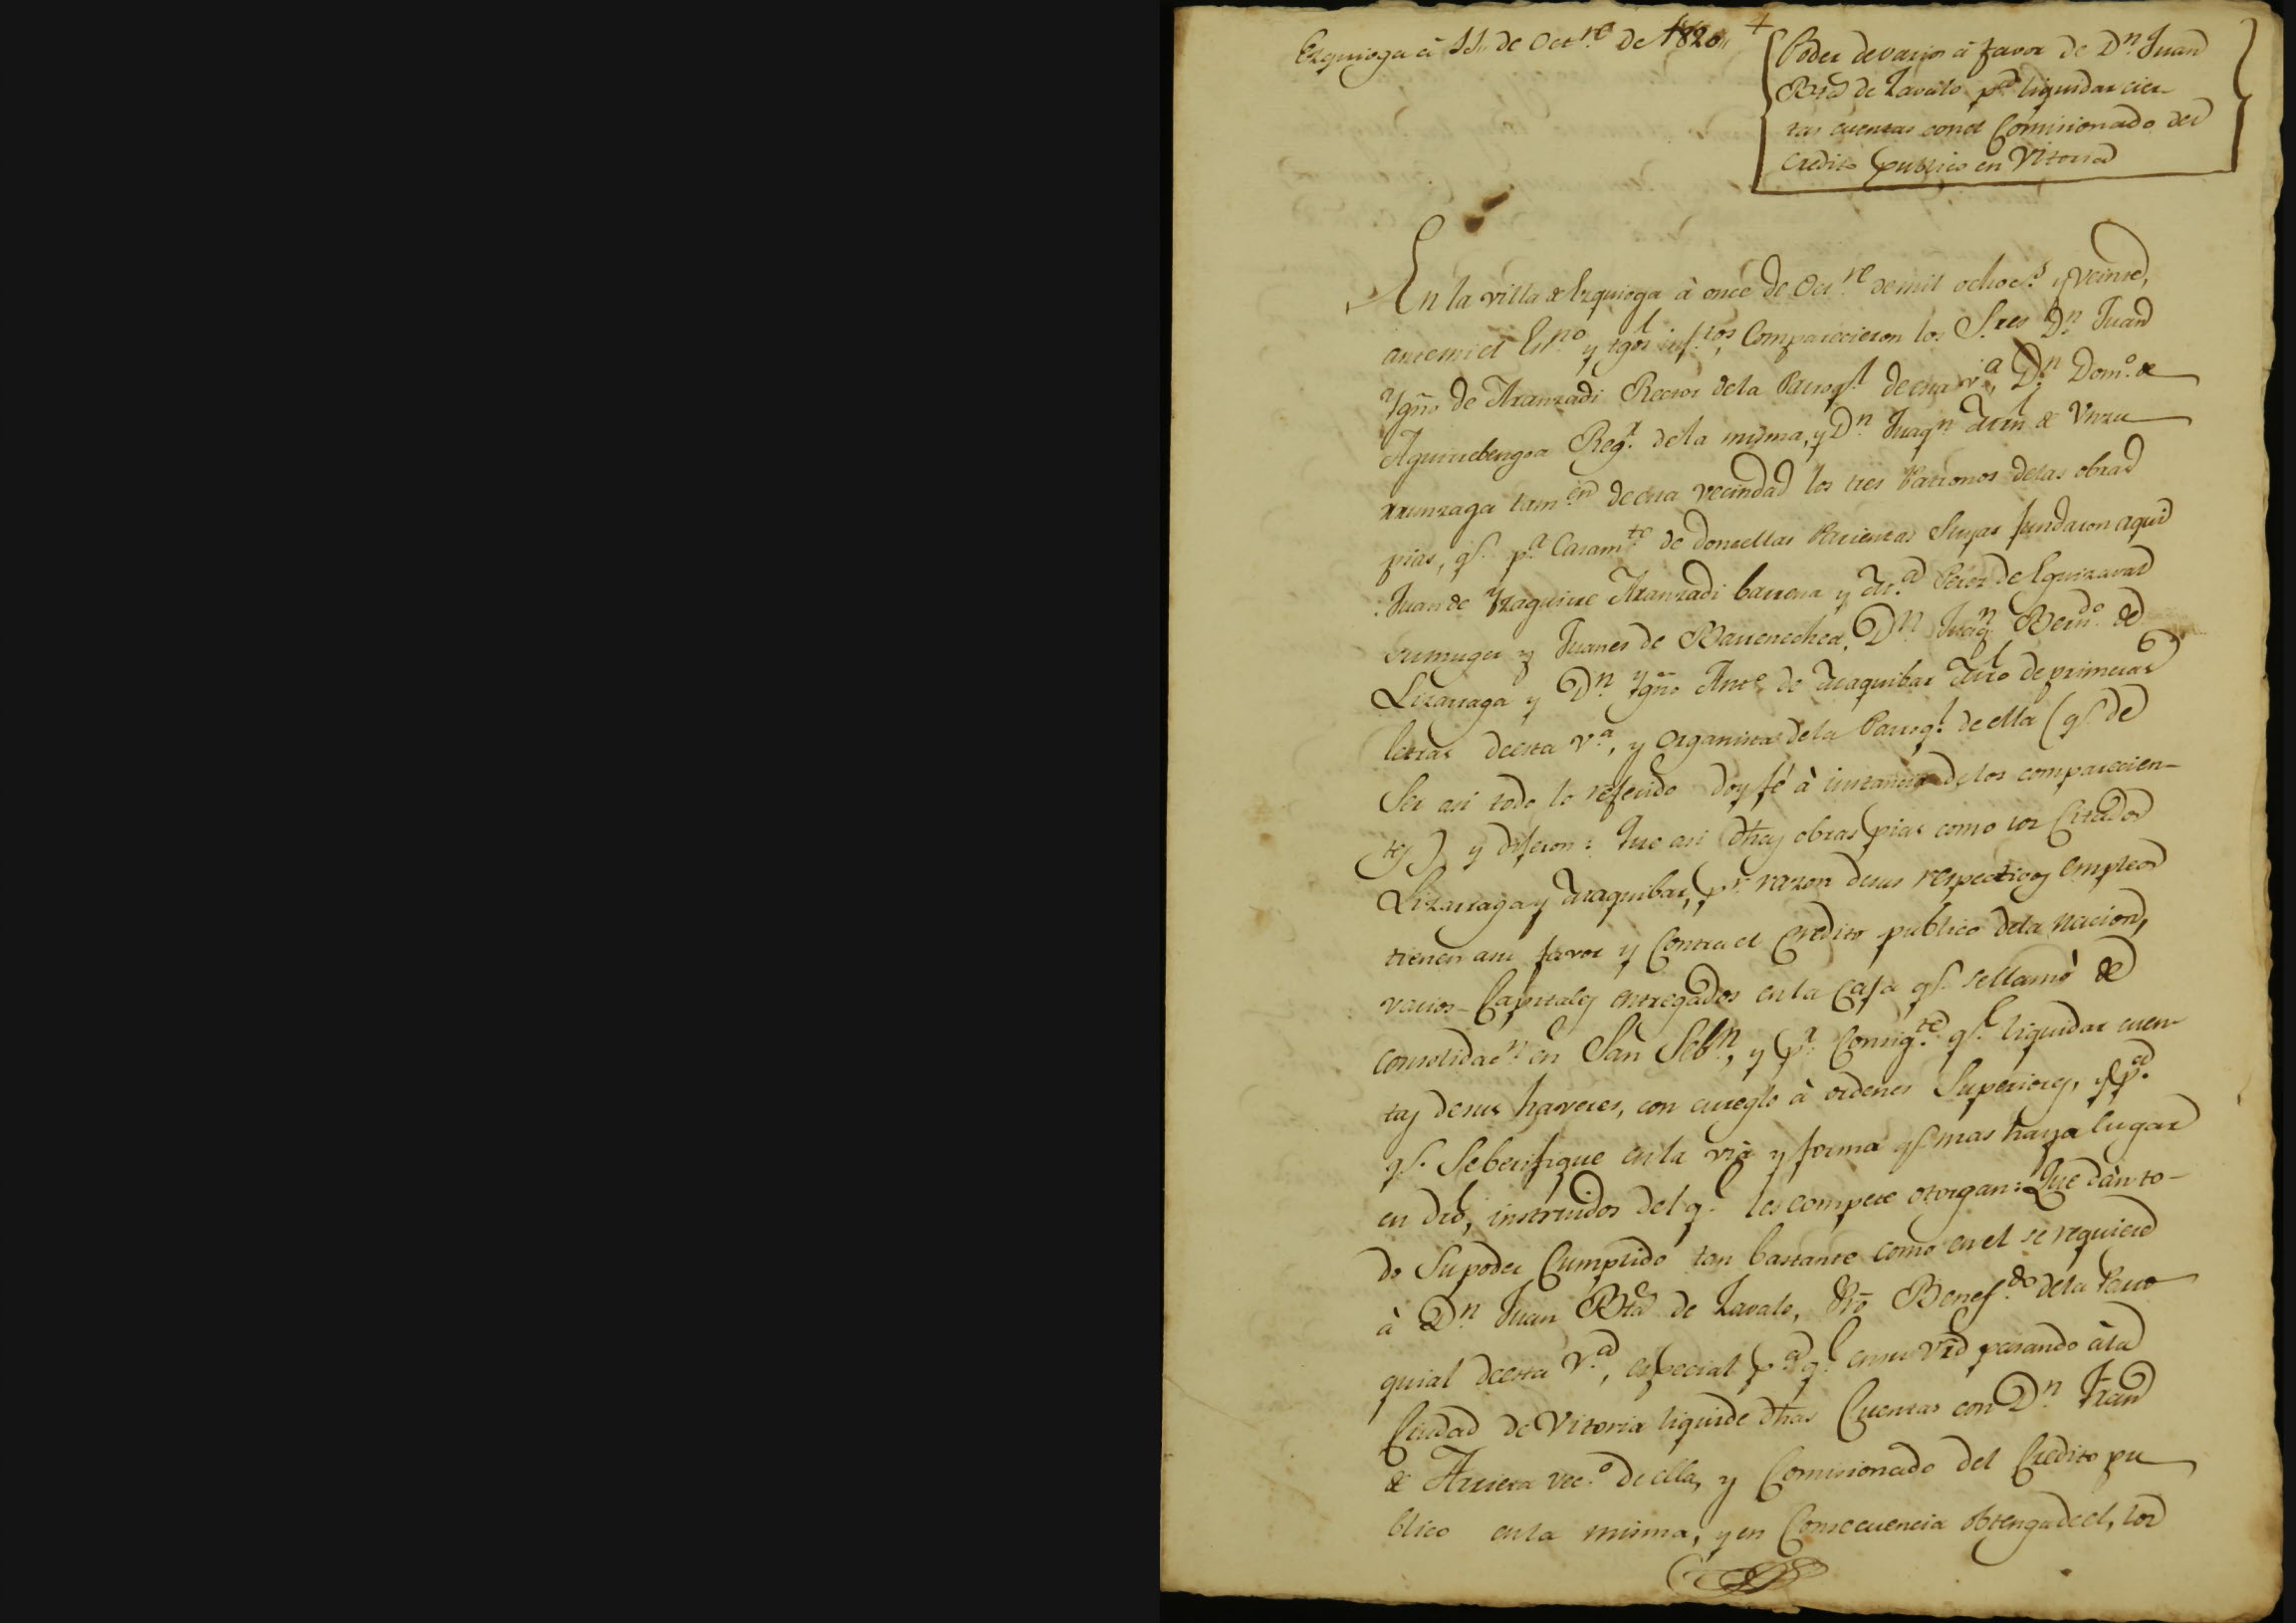 Ezquioga á 11. de Oct.re de 1820,,
+
Poder de varios á favor de Dn. Juan
Bta. de Zavalo pa. liquidar cier-
tas cuentas con el Comisionado del
Credito publico en Vitoria
En la villa de Ezquioga à once de Oct.re de mil ochoc.s y veinte,
ante mi el Es.no y tgos. infros. Comparecieron los S.res Dn. Juan
Ygño de Aranzadi Rector de la Parroql. de esta v.a, Dn. Dom.o de
Aguirrebengoa Reg.r de la misma, y Dn. Juaqn. de Vnzu
rrunzaga tam.en de esta vecindad los tres Patronos de las obras
pias, q.e p.a Casam.to de doncellas Parientas Suyas fundaron aqui
Juan de Yzaguirre Aranzadi barrena y Perez de Eguizaval
su muger y Juanes de Barrenechea, Dn. Juaqn. Bern.do de
Lizarraga y Dn. Ygño Ant.o de Iraquibar Mro de primeras
letras de esta v.a, y Organista de la Parroq.l de ella (q.e de
Ser asi todo lo referido doy fé à instancia de los comparecien-
tes) y dijeron: Que asi dhas obras pias como los Citados
Lizarraga y Iraquibar, p.r razon de sus respectivos empleos
tienen asu favor y Contra el Credito publico de la Nacion,
varios Capitales entregados en la Caja q.e se llamò de
consolidac.n en San Seb.n, y p.r Consig.te q.e liquidar cuen-
tas de sus haveres, con arreglo à ordenes Superiores, y p.a
q.e Se berifique en la via y forma q.e mas haya lugar
en dro, instruidos del q.e les compete otorgan: Que dàn to-
do Su poder Cumplido tan bastante como en el se requiere
à Dn. Juan Bta de Zavalo, Pro Benef.do de la Parro
quial de esta V.a, especial p.a q.e en su vrd pasando à la
Ciudad de Vitoria liquide dhas Cuentas con Dn. Juan
de Arriera vec.o de ella, y Comisionado del Credito pu
blico en la misma, y en Consecuencia obtenga de el, los